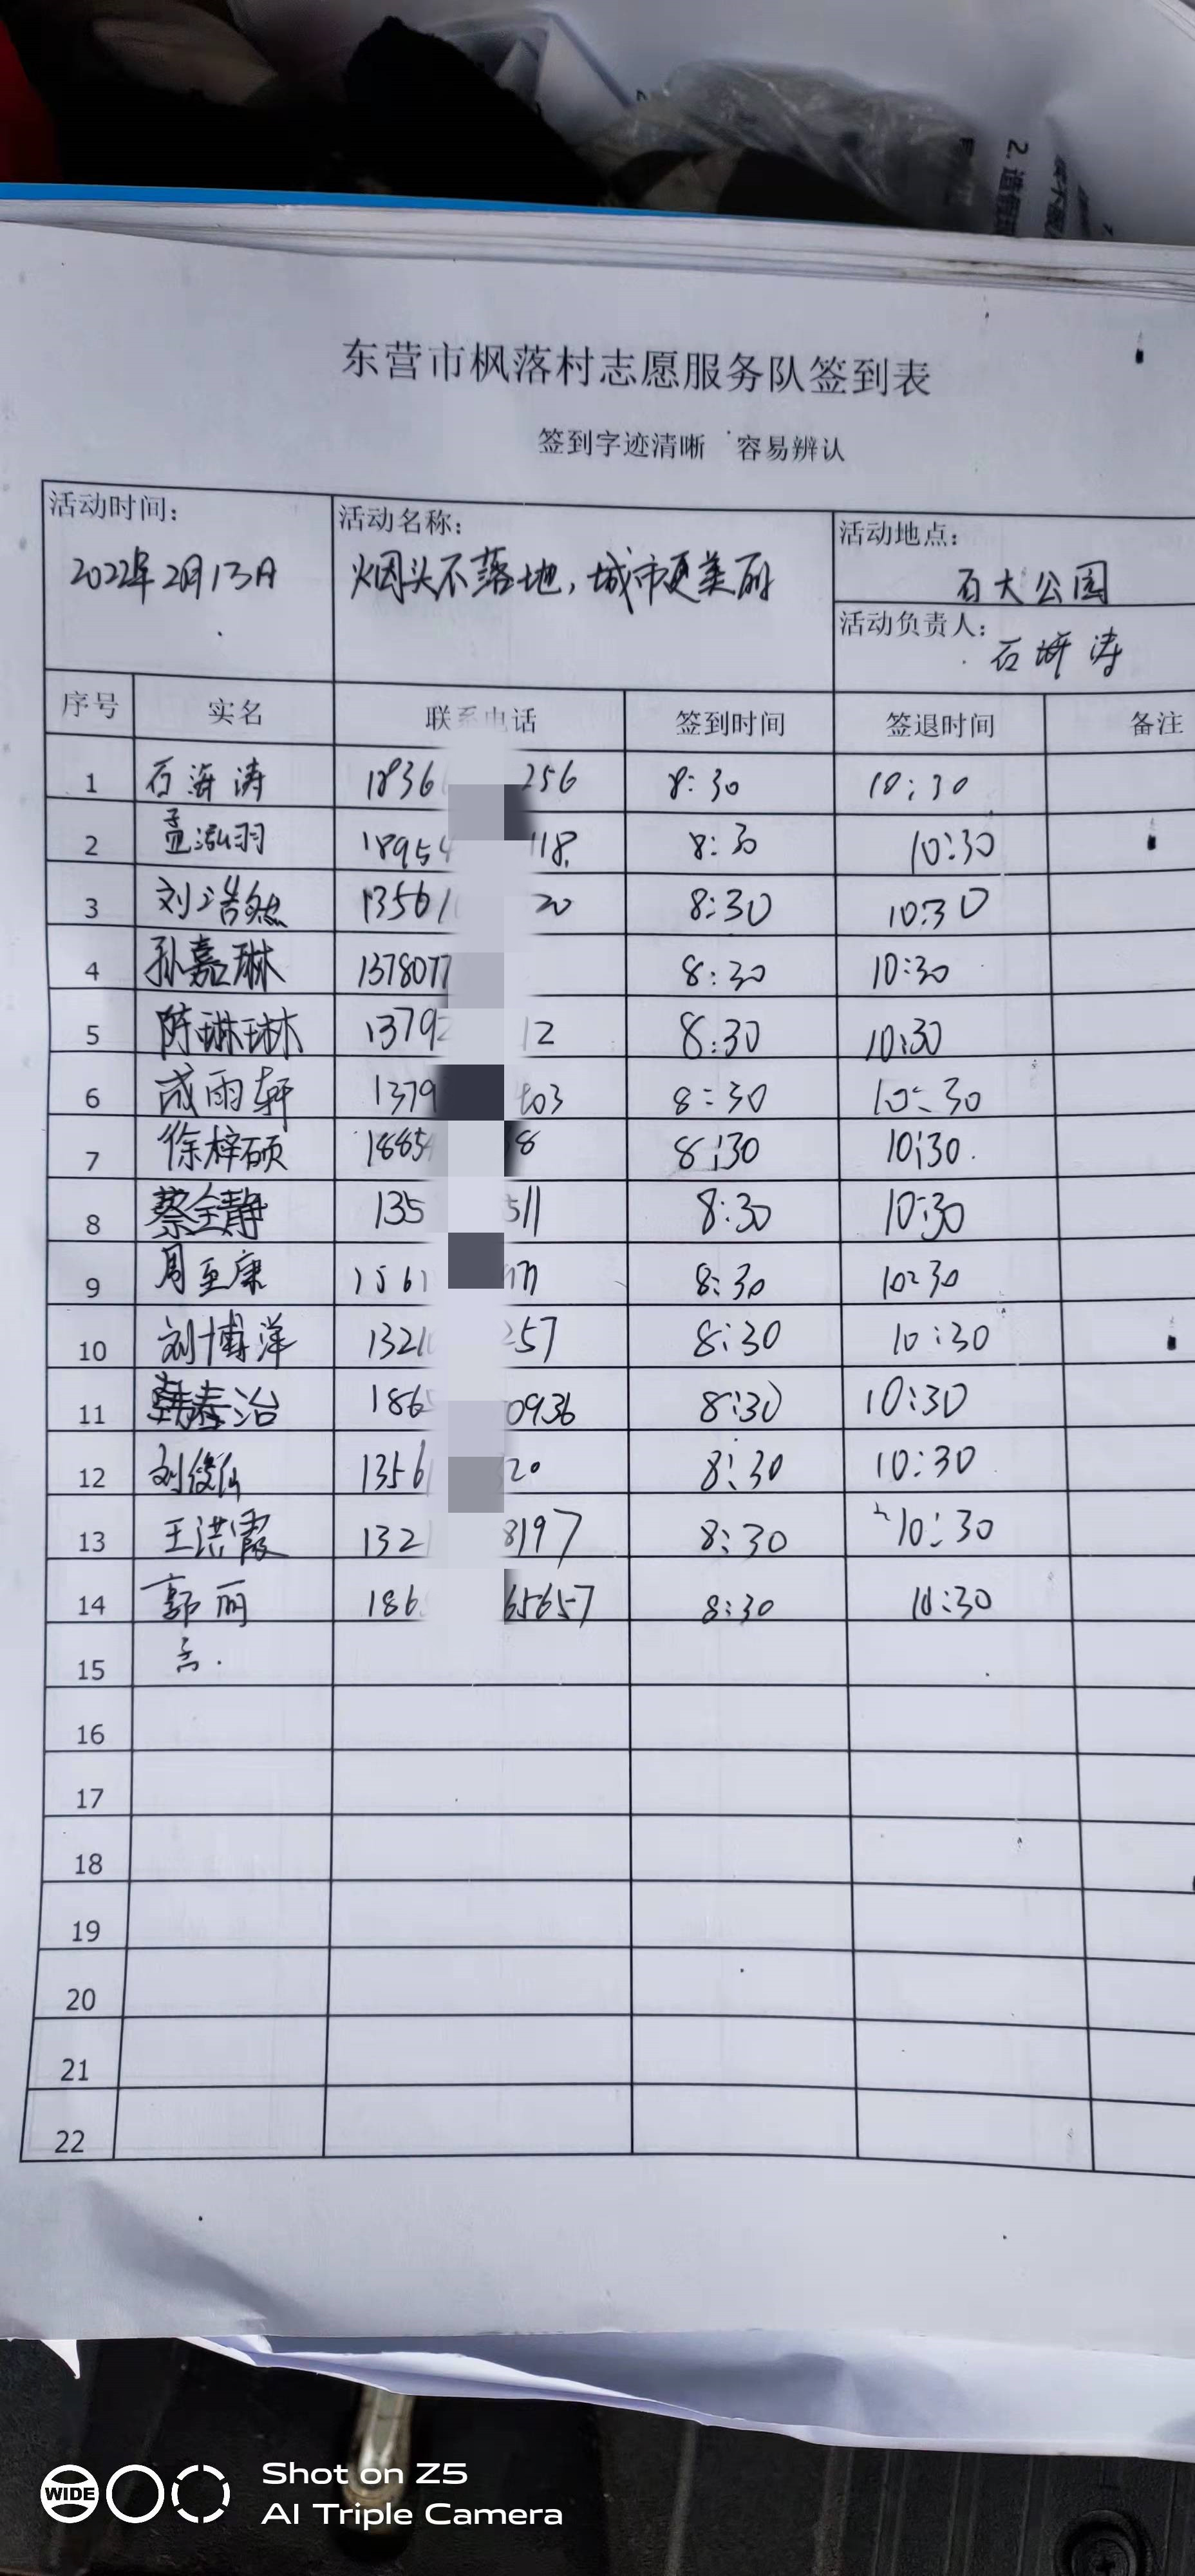 东营市枫落村志愿服务队签到表
签到字迹清晰 容易辨认
活动时间：
2022年2月13日
活动名称：
烟头不落地，城市更美丽
活动地点：
百大公园
活动负责人：
石 涛
序号 实名 联系电话 签到时间 签退时间 备注
1 石海涛 1836 256 8:30 10:30
2 孟泓羽 18954 118 8:30 10:30
3 刘浩然 13561 20 8:30 10:30
4 孙嘉琳 1378077 8:30 10:30
5 陈琳琳 1379 12 8:30 10:30
6 成雨轩 1379 403 8:30 10:30
7 徐梓硕 1885 8 8:30 10:30
8 蔡全静 135 511 8:30 10:30
9 周亚康 1561 77 8:30 10:30
10 刘博洋 1321 257 8:30 10:30
11 韩春治 186 0936 8:30 10:30
12 刘俊 1356 20 8:30 10:30
13 王洪霞 132 8197 8:30 10:30
14 郭丽 186 65657 8:30 10:30
15
16
17
18
19
20
21
22
WIDE
Shot on Z5
AI Triple Camera